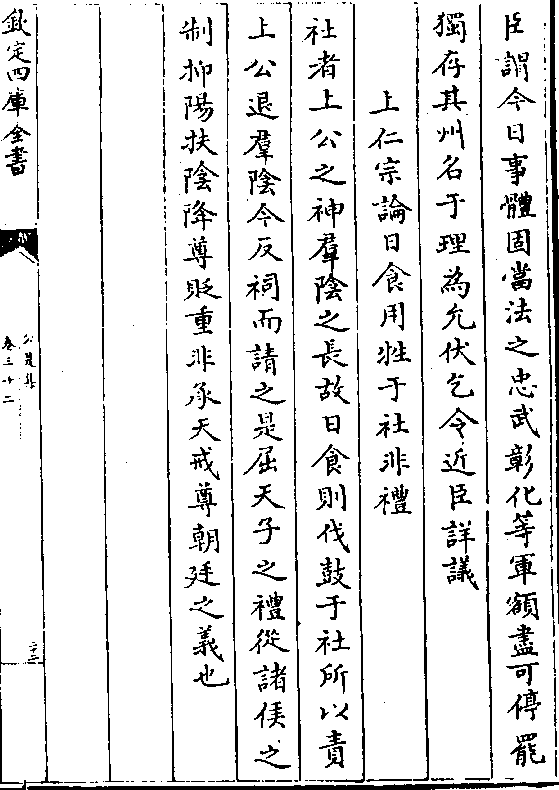 臣謂今日事體固當法之忠武彰化等軍額盡可停罷
獨存其州名于理為允伏乞令近臣詳議
上仁宗論日食用牲于社非禮
社者上公之神羣陰之長故日食則伐鼓于社所以責
上公退羣陰今反祠而請之是屈天子之禮從諸侯之
制抑陽扶陰降尊貶重非承天戒尊朝廷之義也
欽定四庫全書
公是集
卷三十二